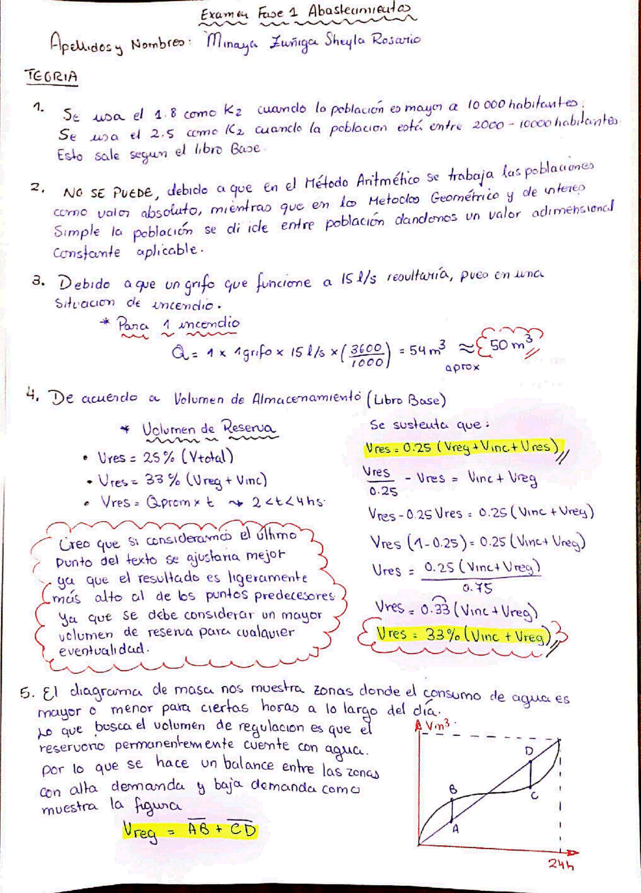 Examen Fase 1 Abastecimientos
Apellidos y Nombres: Minaya Zuñiga Sheyla Rosario
TEORIA
1. Se usa el 1.8 como K2 cuando la población es mayor a 10 000 habitantes.
Se usa el 2.5 como K2 cuando la poblacion está entre 2000 - 10000 habitantes
Esto sale segun el libro Base.
2. NO SE PUEDE, debido a que en el Método Aritmético se trabaja las poblaciones
como valor absoluto, mientras que en los Metodos Geométrico y de interes
Simple la población se di ide entre población dandonos un valor adimensional
Constante aplicable.
3. Debido a que un grifo que funcione a 15 l/s resultaría, pues en una
Situacion de incendio.
* Para 1 incendio
Q = 1 x 1grifo x 15 l/s x (3600/1000) = 54 m³ ≈ 50 m³
aprox
4. De acuerdo a Volumen de Almacenamiento (Libro Base)
* Volumen de Reserva
• Vres = 25% (Vtotal)
• Vres = 33% (Vreg + Vinc)
• Vres = Qprom x t → 2<t<4hs.
Creo que si consideramos el último
Punto del texto se ajustaria mejor
ya que el resultado es ligeramente
más alto al de los puntos predecesores
Ya que se debe considerar un mayor
volumen de reserva para cualquier
eventualidad.
Se sustenta que:
Vres = 0.25 (Vreg + Vinc + Vres)
Vres/0.25 - Vres = Vinc + Vreg
Vres - 0.25 Vres = 0.25 (Vinc + Vreg)
Vres (1-0.25) = 0.25 (Vinc + Vreg)
Vres = 0.25 (Vinc + Vreg)/0.75
Vres = 0.33 (Vinc + Vreg)
Vres = 33% (Vinc + Vreg)
5. El diagrama de masa nos muestra zonas donde el consumo de agua es
mayor o menor para ciertas horas a lo largo del día.
Lo que busca el volumen de regulacion es que el
reservorio permanentemente cuente con agua.
por lo que se hace un balance entre las zonas
con alta demanda y baja demanda como
muestra la figura
Vreg = AB + CD
Vm³
B
A
D
C
24h